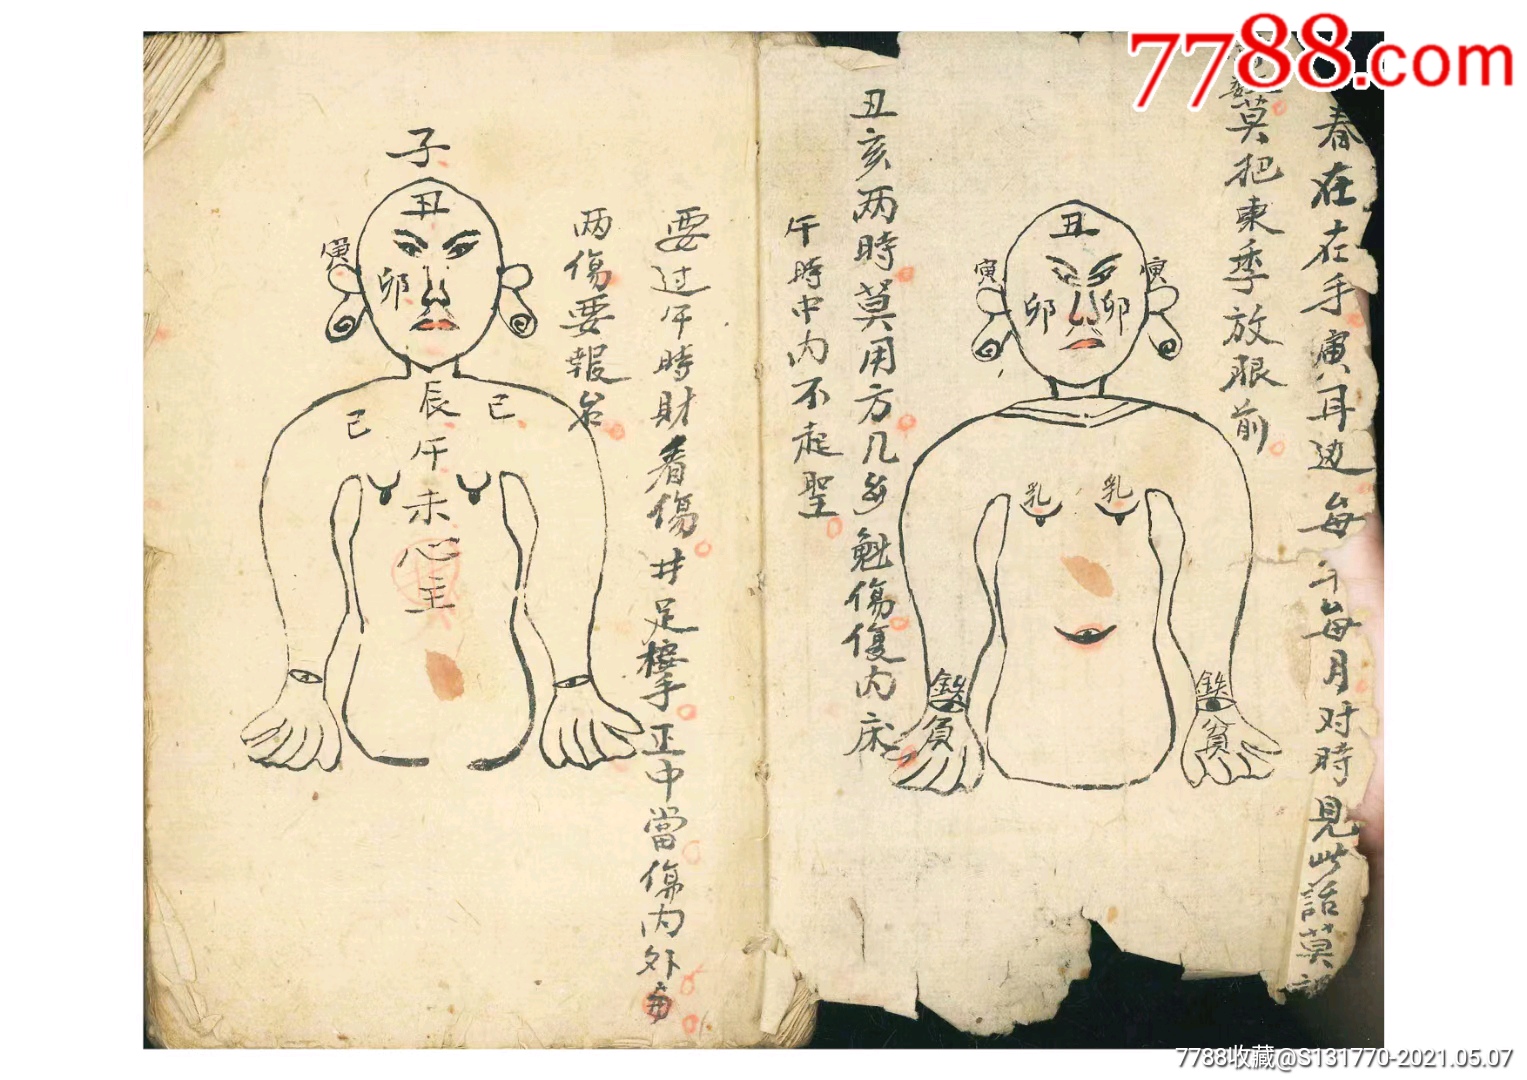 7788.com
春在在手寅耳边每年每月对時見此話莫
莫把東季放眼前
丑
寅
寅
卯
卯
乳
乳
丑亥两時莫用方几多魁傷復内床
午時中内不起聖
要过午時財看傷井足搖手正中當傷内外
两傷要報
子
丑
寅
卯
辰
己
己
午
未
心
主
7788收藏@S131770-2021.05.07